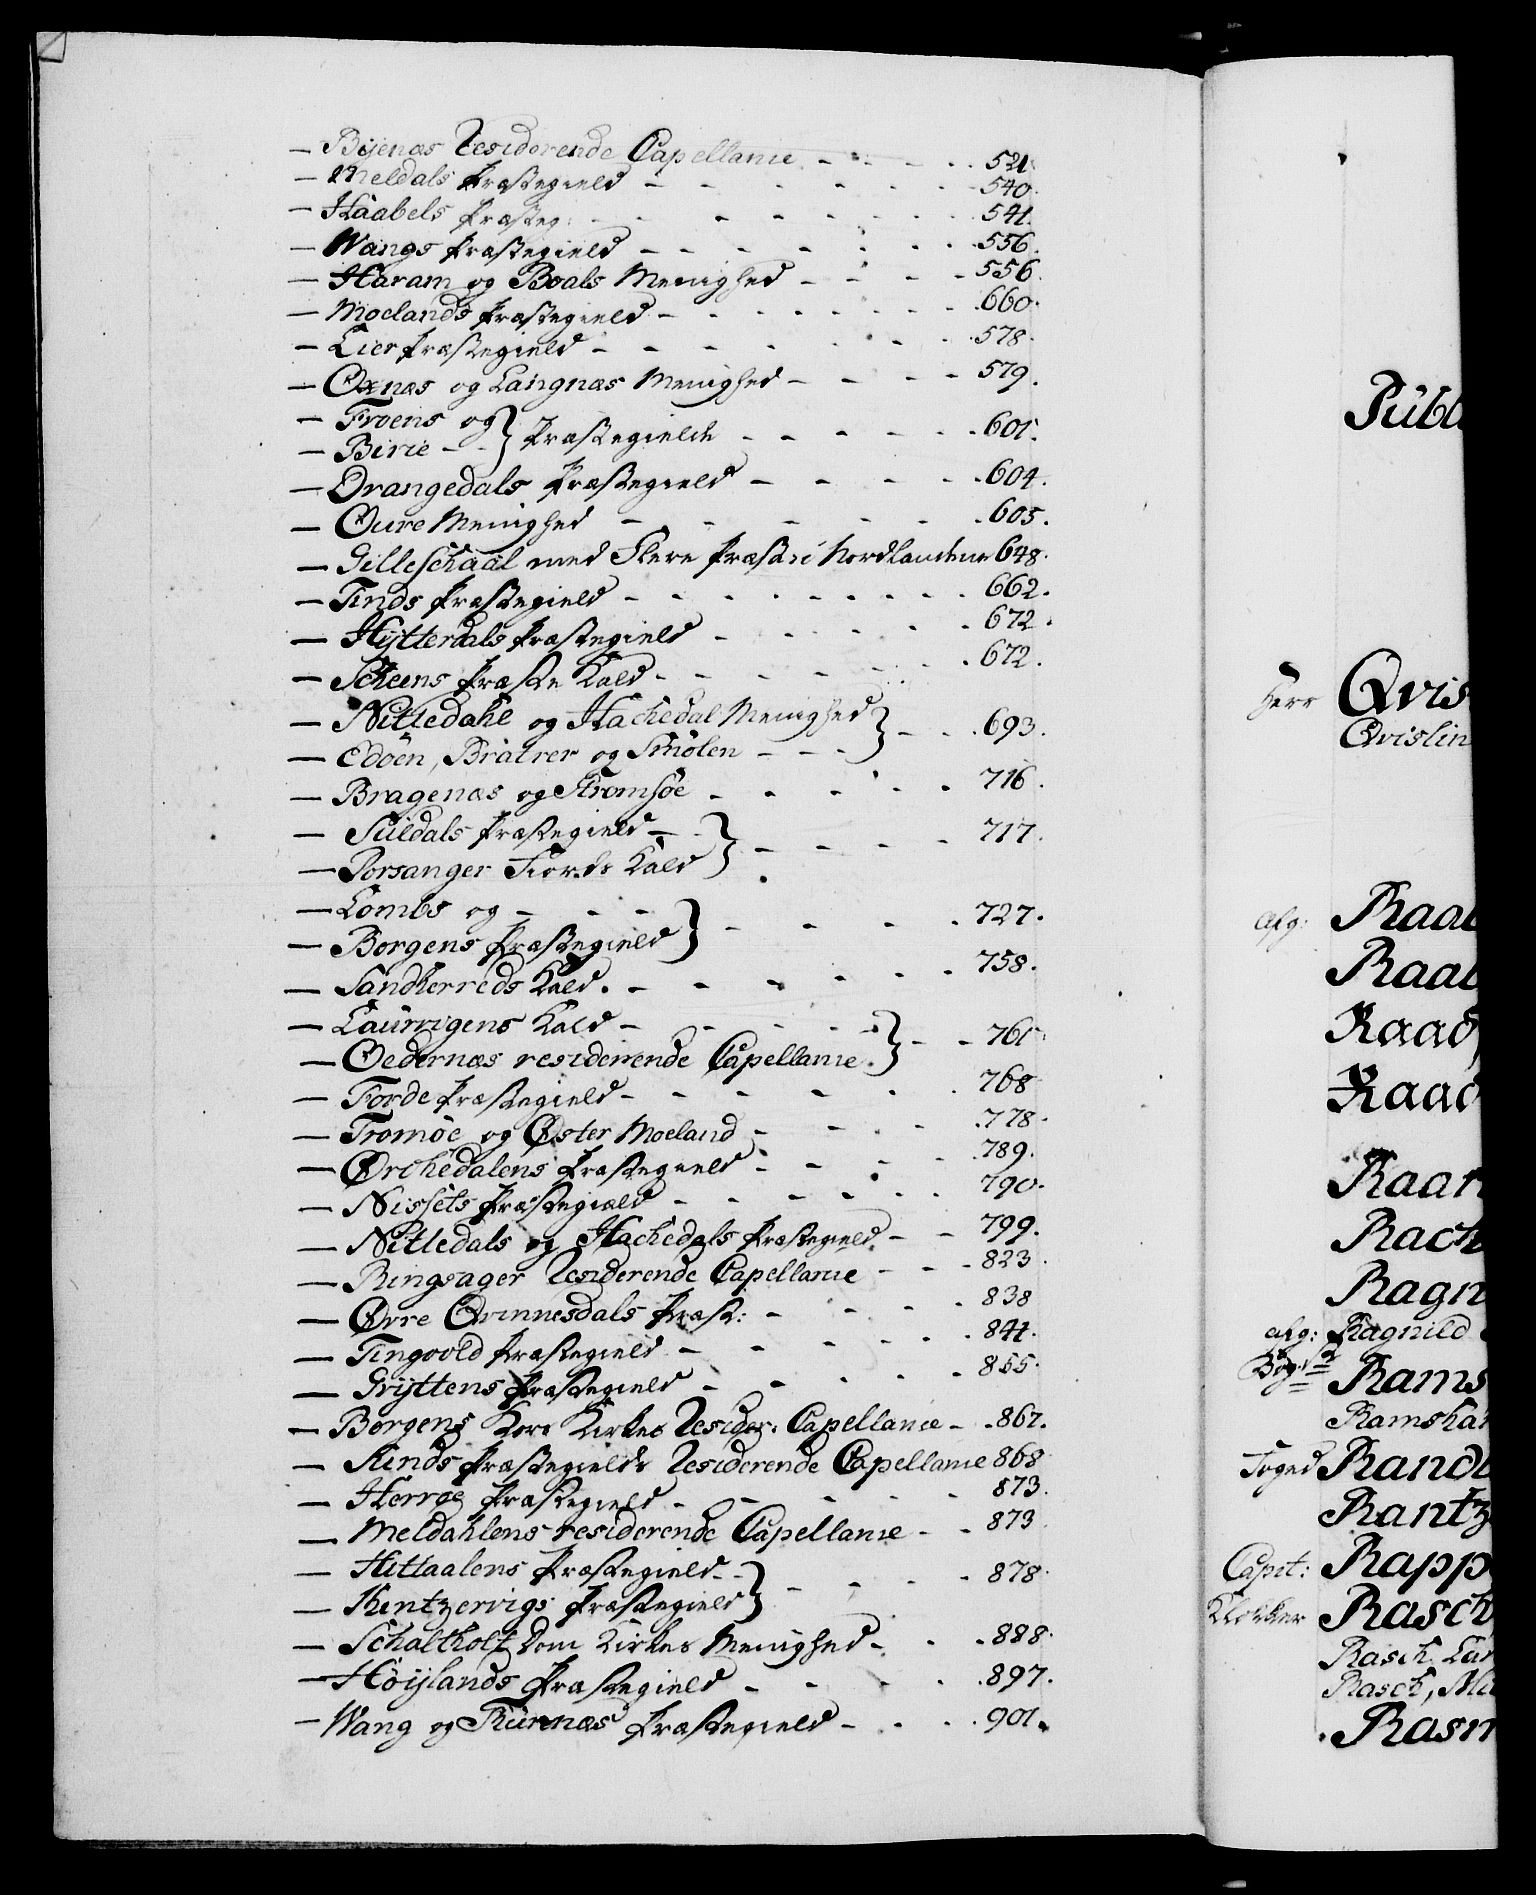 — Bÿenæs Residerende Capellanie - - - - 521.
— Meldals Præstegield - - - - - - - 540.
— Haabels Præsteg: - - - - - - - 541.
— Wangs Præstegield - - - - - - - 556.
— Haram og Boals Menighed - - - - 556.
— Moelands Præstegield - - - - - - - 660.
— Lier Præstegield - - - - - - - 578.
— Oxnæs og Langnæs Menighed - - - - 579.
— Froens og
— Birie - - } Præstegielde - - - - - - 601.
— Drangedals Præstegield - - - - - 604.
— Oure Menighed - - - - - 605.
— Gilleschaal med Flere Præst: i Nordlandene 648.
— Tinds Præstegield - - - - - - - - - 662.
— Hytterdals Præstegield - - - - - 672.
— Scheens Præste Kald - - - - - - 672.
— Nitledahl og Hachedal Menighed
— Edöen, Bratrer og Smölen - - - } - - - 693.
— Bragenæs og Strömsöe - - - - - 716.
— Suldals Præstegield - -
— Porsanger Fiords Kald } - - - - 717.
— Lombs og - - -
— Borgens Præstegield } - - - - 727.
— Sandherreds Kald. - - - - - - 758.
— Laurvigens Kald - - - - -
— Oedernæs residerende Capellanie. } - - 761.
— Forde Præstegield - - - - - - 768
— Tromöe og Øster Moeland - - - - 778.
— Ørchedalens Præstegield - - - - 789.
— Nissets Præstegiæld - - - - - - 790.
— Nitledals og Hachedals Præstegield - - 799.
— Ringsager Residerende Capellanie - - - 823.
— Øvre Qvinnesdals Præst: - - - - 838
— Tingvold Præstegield - - - - - - 841.
— Gryttens Præstegield - - - - - 855.
— Borgens Kors Kirkes Resider: Capellanie - - 867.
— Kinds Præstegields Residerende Capellanie 868
— Herröe Præstegield - - - - - 873.
— Meldahlens residerende Capellanie - - 873
— Hittaalens Præstegield - -
— Kintzervigs Præstegield } - - - - 878.
— Schaltholt Dom Kirkes Menighed - - - 888.
— Höÿlands Præstegield - - - - - 897.
— Wang og Fürnæs Præstegield - - - - 901.
Publ
Herr Qvis
Qvislin
Afg: Raab
Raab
Raad
Raad
Raan
Rach
Ragn
afg: Ragnild
Rams
Ramshar
Foged Rand
Rantz
Capit: Rapp
Klokker Rasch
Rasch. Lar
Rasch, Mi
Rasm